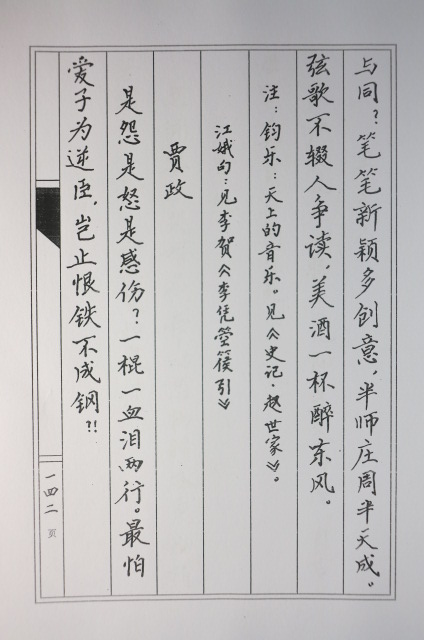 与同？笔笔新颖多创意，半师庄周半天成。
弦歌不辍人争读，美酒一杯醉东风。
注：钧乐：天上的音乐。见《史记·赵世家》。
江娥句：见李贺《李凭箜篌引》
贾政
是怨是怒是感伤？一棍一血泪两行。最怕
爱子为逆臣，岂止恨铁不成钢？！
一四二页